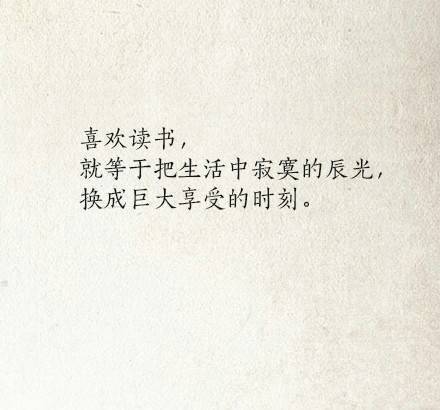 喜欢读书，
就等于把生活中寂寞的辰光，
换成巨大享受的时刻。